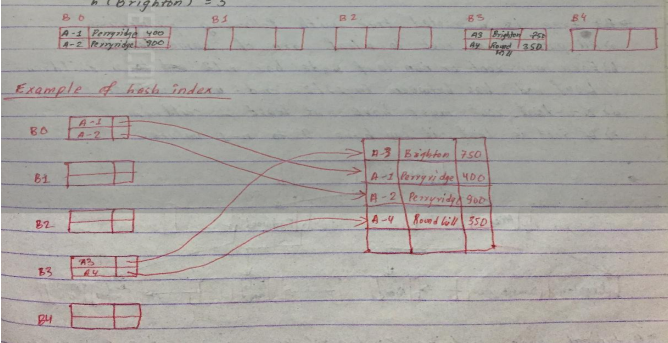 h (Brighton) = 3
B 0 B1 B2 B3 B4
A-1 Perryridge 400
A-2 Perryridge 900
A3 Brighton 750
A4 Round hill 350
Example of hash index
B0 A-1
A-2
B1
B2
B3 A3
A4
B4
A-3 Brighton 750
A-1 Perryridge 400
A-2 Perryridge 900
A-4 Round hill 350